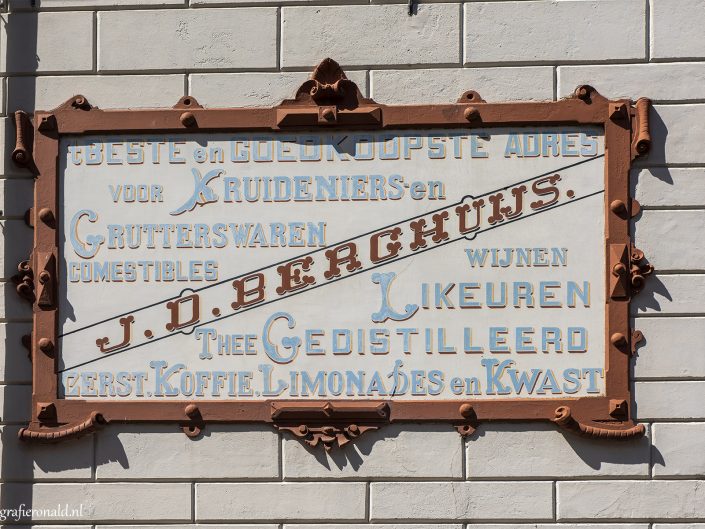 't BESTE en GOEDKOOPSTE ADRES
VOOR KRUIDENIERS- en
GRUTTERSWAREN
COMESTIBLES
J. D. BERGHUIJS.
WIJNEN
LIKEUREN
THEE GEDISTILLEERD
EERST. KOFFIE, LIMONADES en KWAST
grafieronald.nl